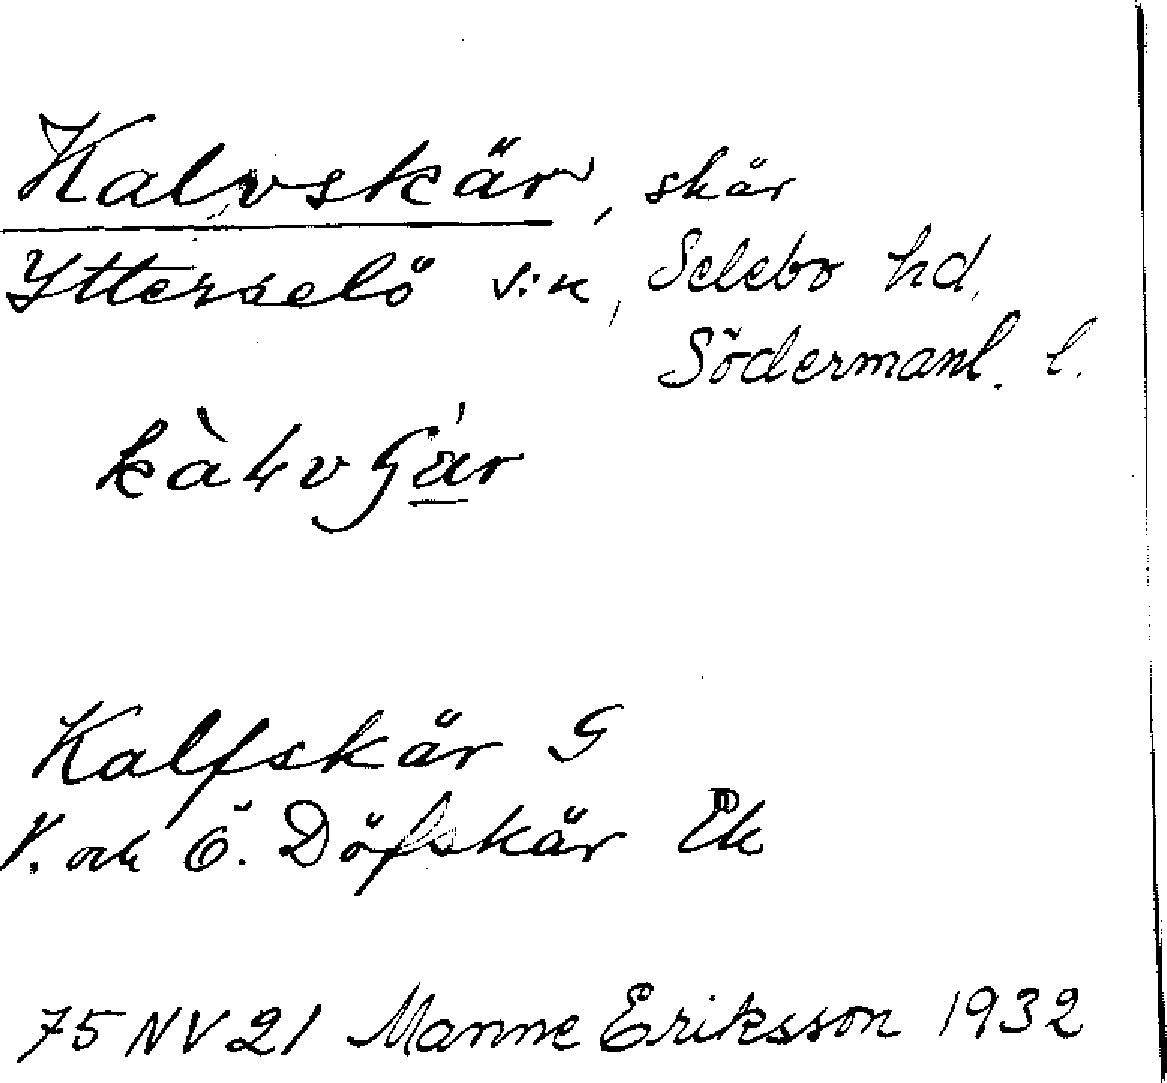 Kalvskär, skär
Ytterselö s:n, Selebo hd,
Södermanl. l.
Kalfskär G
V. och Ö. Döfskär Ek
75 NV 21 Manne Eriksson 1932